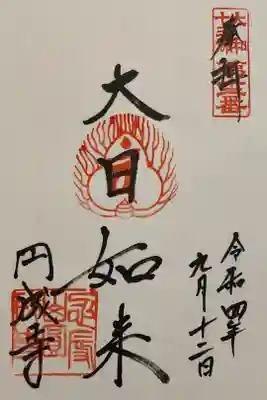 奉拝
令和四年
九月十二日
大日如来
円成寺